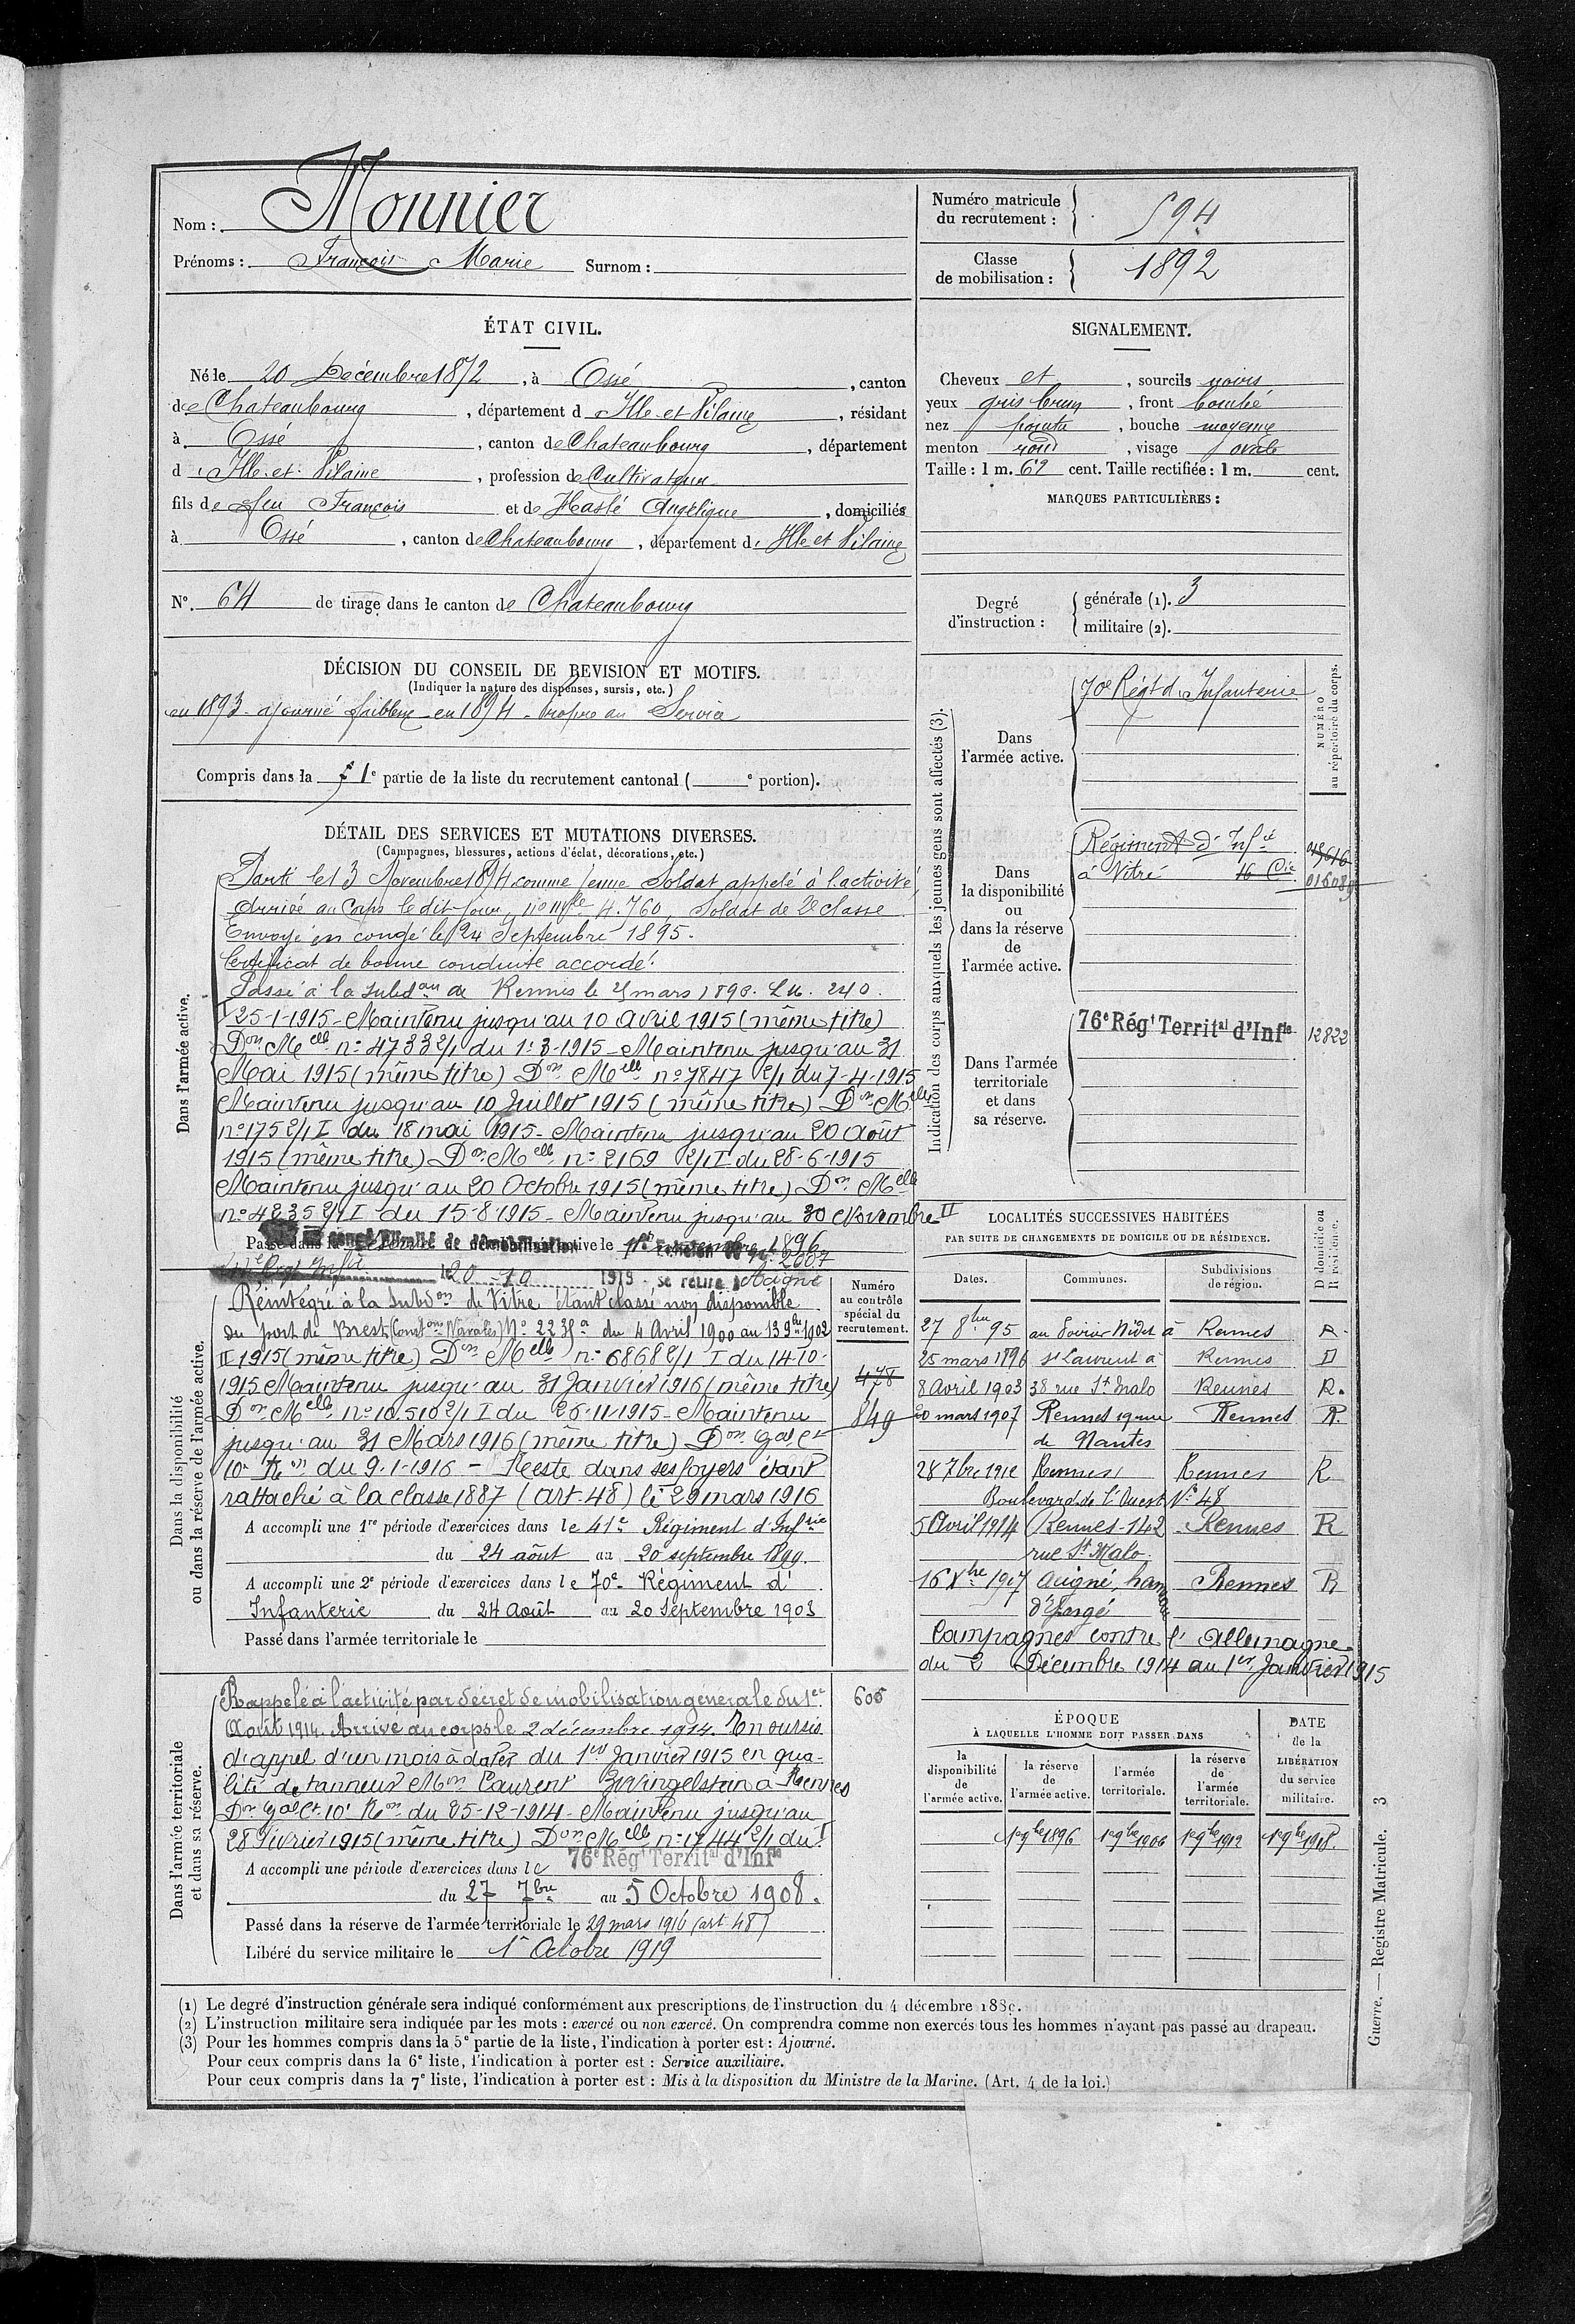 Nom : Monnier
Prénoms : François Marie Surnom :
Numéro matricule du recrutement : 594
Classe de mobilisation : 1892
ÉTAT CIVIL.
Né le 20 Décembre 1872, à Ossé, canton
de Chateaubourg, département d'Ille-et-Vilaine, résidant
à Ossé, canton de Chateaubourg, département
d'Ille-et-Vilaine, profession de Cultivateur
fils de feu François et de Haslé Angélique, domiciliés
à Ossé, canton de Chateaubourg, département d'Ille et Vilaine
N°. 64 de tirage dans le canton de Chateaubourg
SIGNALEMENT.
Cheveux et, sourcils noirs
yeux gris brun, front bombé
nez pointu, bouche moyenne
menton rond, visage ovale
Taille : 1 m. 62 cent. Taille rectifiée : 1 m. cent.
MARQUES PARTICULIÈRES :
Degré d'instruction : générale (1). 3
militaire (2).
DÉCISION DU CONSEIL DE REVISION ET MOTIFS.
(Indiquer la nature des dispenses, sursis, etc.)
en 1893 - ajourné faiblesse - en 1894 - Propre au Service
Compris dans la 1e partie de la liste du recrutement cantonal ( e portion).
DÉTAIL DES SERVICES ET MUTATIONS DIVERSES.
(Campagnes, blessures, actions d'éclat, décorations, etc.)
Dans l'armée active.
Parti le 13 Novembre 1894 comme jeune Soldat appelé à l'activité,
Arrivé au Corps le dit jour, no mle 4.760, Soldat de 2e classe
Envoyé en congé le 24 Septembre 1895.
Certificat de bonne conduite accordé.
Passé à la Subdon de Rennes le mars 1898. 240.
I 25-1-1915 - Maintenu jusqu'au 10 Avril 1915 (même titre)
Don Melle n° 4733 2/1 du 1-3-1915 - Maintenu jusqu'au 31
Mai 1915 (même titre) Don Melle n° 7847 2/1 du 7-4-1915
Maintenu jusqu'au 10 Juillet 1915 (même titre) Don Melle
n° 175 2/1 I du 18 mai 1915 - Maintenu jusqu'au 20 Août
1915 (même titre) Don Melle n° 2169 2/1 I du 28-6-1915
Maintenu jusqu'au 20 Octobre 1915 (même titre) Don Melle
n° 4235 2/1 I du 15-8-1915 - Maintenu jusqu'au 30 Novembre II
Passé dans la active le 1896
congé illimité de démobilisation Échelon N° 2607
le 20 - 10 1919 - se retire à Acigné
Dans la disponibilité ou dans la réserve de l'armée active.
Réintégré à la Subdon de Vitré étant classé non disponible
du port de Brest (Constons Navales) N° 2235a du 4 Avril 1900 au 13 9bre 1902
II 1915 (même titre) Don Melle n° 6868 2/1 I du 14-10-
1915 Maintenu jusqu'au 31 Janvier 1916 (même titre)
Don Melle n° 10.510 2/1 I du 26-11-1915 - Maintenu
jusqu'au 31 Mars 1916 (même titre) Don Gal Ct
10e Ron du 9-1-1916 - Reste dans ses foyers étant
rattaché à la classe 1887 (art. 48) le 29 mars 1916
A accompli une 1re période d'exercices dans le 41e Régiment d'Infrie
du 24 août au 20 septembre 1899.
A accompli une 2e période d'exercices dans le 70e Régiment d'
Infanterie du 24 Août au 20 Septembre 1903
Passé dans l'armée territoriale le
Numéro au contrôle spécial du recrutement.
478
849
606
Dans l'armée territoriale et dans sa réserve.
Rappelé à l'activité par décret de mobilisation générale du 1er
Août 1914. Arrivé au corps le 2 décembre 1914. En sursis
d'appel d'un mois à dater du 1er Janvier 1915 en qua-
lité de tanneur Mon Laurent Zwingelstein à Rennes
Don Gal Ct 10e Ron du 25-12-1914 - Maintenu jusqu'au
28 Février 1915 (même titre) Don Melle n° 1744 2/1 du I
A accompli une période d'exercices dans le 76e Régt Territal d'Infie
du 27 7bre au 5 Octobre 1908.
Passé dans la réserve de l'armée territoriale le 29 mars 1916 (art 48)
Libéré du service militaire le 1er Octobre 1919
Indication des corps auxquels les jeunes gens sont affectés (3).
NUMÉRO au répertoire du corps.
Dans l'armée active.
70e Régt d'Infanterie
Dans la disponibilité ou dans la réserve de l'armée active.
Régiment d'Infie
à Vitré 16 Cie
016089
Dans l'armée territoriale et dans sa réserve.
76e Régt Territal d'Infie 12822
LOCALITÉS SUCCESSIVES HABITÉES
PAR SUITE DE CHANGEMENTS DE DOMICILE OU DE RÉSIDENCE.
Dates. Communes. Subdivisions de région. D domicile ou R résidence.
27 8bre 95 au à Rennes R.
25 mars 1896 St Laurent à Rennes D
8 Avril 1903 38 rue St Malo Rennes R.
20 mars 1907 Rennes 19 rue Rennes R.
de Nantes
28 7bre 1912 Rennes Rennes R
Boulevard de l'Ouest N° 48
5 Avril 1914 Rennes - 142 Rennes R
rue St Malo.
16 Xbre 1917 Acigné, hameau Rennes R
d'Forgé
Campagnes contre l'Allemagne.
du 2 Décembre 1914 au 1er Janvier 1915
ÉPOQUE
À LAQUELLE L'HOMME DOIT PASSER DANS
la disponibilité de l'armée active. la réserve de l'armée active. l'armée territoriale. la réserve de l'armée territoriale. DATE de la LIBÉRATION du service militaire.
1er 9bre 1896 1er 9bre 1906 1er 9bre 1912 1er 9bre 1918.
(1) Le degré d'instruction générale sera indiqué conformément aux prescriptions de l'instruction du 4 décembre 1889.
(2) L'instruction militaire sera indiquée par les mots : exercé ou non exercé. On comprendra comme non exercés tous les hommes n'ayant pas passé au drapeau.
(3) Pour les hommes compris dans la 5e partie de la liste, l'indication à porter est : Ajourné.
Pour ceux compris dans la 6e liste, l'indication à porter est : Service auxiliaire.
Pour ceux compris dans la 7e liste, l'indication à porter est : Mis à la disposition du Ministre de la Marine. (Art. 4 de la loi.)
Guerre. — Registre Matricule. 3